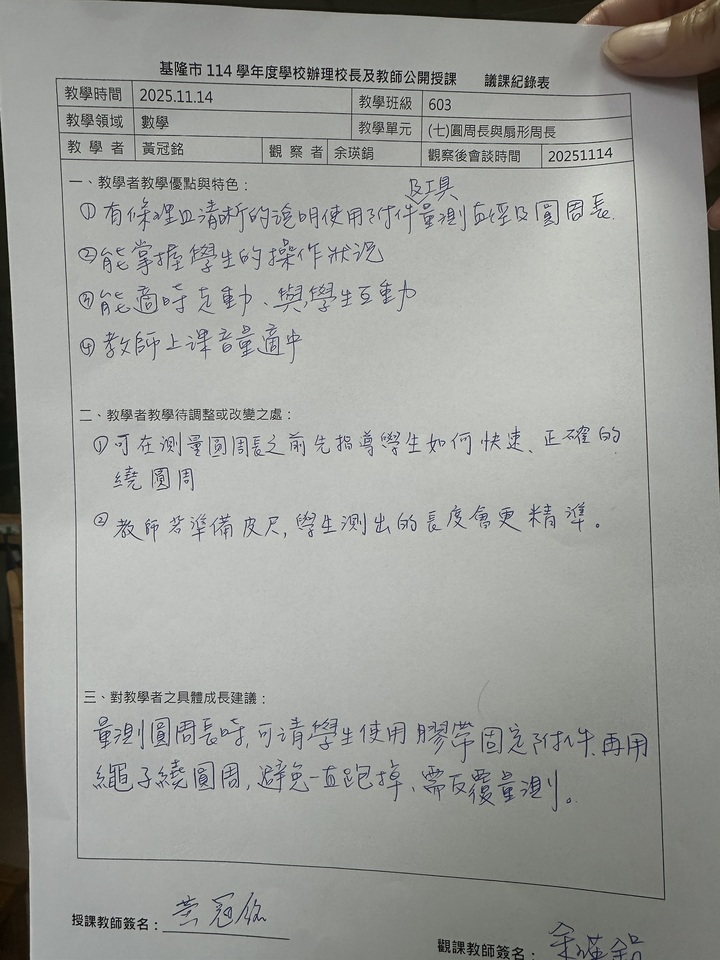 基隆市 114 學年度學校辦理校長及教師公開授課 議課紀錄表
教學時間 2025.11.14 教學班級 603
教學領域 數學 教學單元 (七)圓周長與扇形周長
教學者 黃冠銘 觀察者 余瑛鋗 觀察後會談時間 20251114
一、教學者教學優點與特色：
及工具
① 有條理且清晰的說明使用附件量測直徑及圓周長.
② 能掌握學生的操作狀況
③ 能適時走動、與學生互動
④ 教師上課音量適中
二、教學者教學待調整或改變之處：
① 可在測量圓周長之前先指導學生如何快速、正確的
繞圓周
② 教師若準備皮尺,學生測出的長度會更精準。
三、對教學者之具體成長建議：
量測圓周長時,可請學生使用膠帶固定附件、再用
繩子繞圓周,避免一直跑掉、需反覆量測。
授課教師簽名：黃冠銘
觀課教師簽名：余瑛鋗